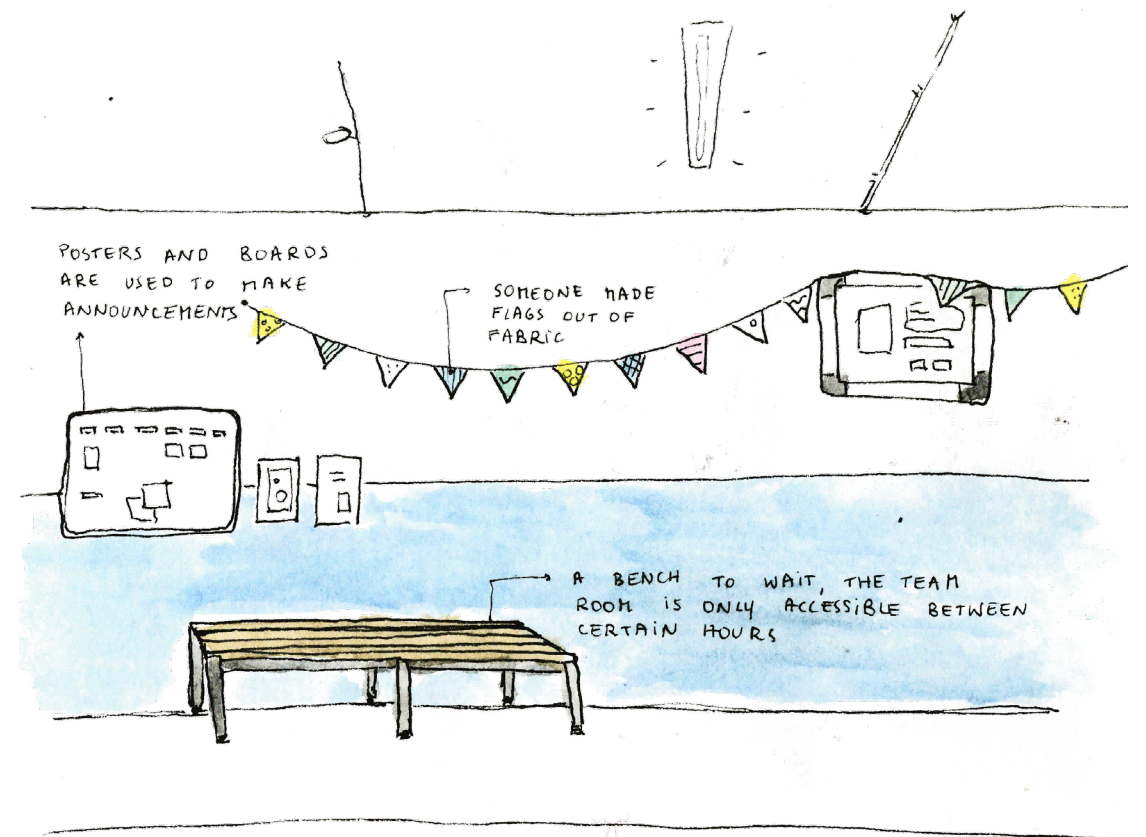 POSTERS AND BOARDS
ARE USED TO MAKE
ANNOUNCEMENTS
SOMEONE MADE
FLAGS OUT OF
FABRIC
A BENCH TO WAIT, THE TEAM
ROOM iS ONLY ACCESSIBLE BETWEEN
CERTAIN HOURS